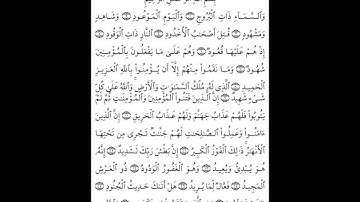 بِسْمِ ٱللَّهِ ٱلرَّحْمَٰنِ ٱلرَّحِيمِ
وَٱلسَّمَآءِ ذَاتِ ٱلْبُرُوجِ ۝ وَٱلْيَوْمِ ٱلْمَوْعُودِ ۝ وَشَاهِدٍ
وَمَشْهُودٍ ۝ قُتِلَ أَصْحَٰبُ ٱلْأُخْدُودِ ۝ ٱلنَّارِ ذَاتِ ٱلْوَقُودِ ۝
إِذْ هُمْ عَلَيْهَا قُعُودٌ ۝ وَهُمْ عَلَىٰ مَا يَفْعَلُونَ بِٱلْمُؤْمِنِينَ
شُهُودٌ ۝ وَمَا نَقَمُوا۟ مِنْهُمْ إِلَّآ أَن يُؤْمِنُوا۟ بِٱللَّهِ ٱلْعَزِيزِ
ٱلْحَمِيدِ ۝ ٱلَّذِى لَهُۥ مُلْكُ ٱلسَّمَٰوَٰتِ وَٱلْأَرْضِ ۚ وَٱللَّهُ عَلَىٰ كُلِّ
شَىْءٍ شَهِيدٌ ۝ إِنَّ ٱلَّذِينَ فَتَنُوا۟ ٱلْمُؤْمِنِينَ وَٱلْمُؤْمِنَٰتِ ثُمَّ لَمْ
يَتُوبُوا۟ فَلَهُمْ عَذَابُ جَهَنَّمَ وَلَهُمْ عَذَابُ ٱلْحَرِيقِ ۝ إِنَّ ٱلَّذِينَ
ءَامَنُوا۟ وَعَمِلُوا۟ ٱلصَّٰلِحَٰتِ لَهُمْ جَنَّٰتٌ تَجْرِى مِن تَحْتِهَا
ٱلْأَنْهَٰرُ ۚ ذَٰلِكَ ٱلْفَوْزُ ٱلْكَبِيرُ ۝ إِنَّ بَطْشَ رَبِّكَ لَشَدِيدٌ ۝ إِنَّهُۥ
هُوَ يُبْدِئُ وَيُعِيدُ ۝ وَهُوَ ٱلْغَفُورُ ٱلْوَدُودُ ۝ ذُو ٱلْعَرْشِ
ٱلْمَجِيدُ ۝ فَعَّالٌ لِّمَا يُرِيدُ ۝ هَلْ أَتَىٰكَ حَدِيثُ ٱلْجُنُودِ ۝